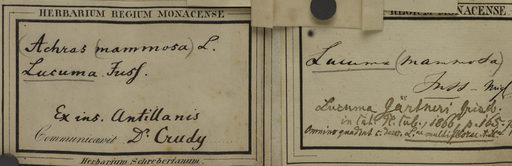 HERBARIUM REGIUM MONACENSE
(Achras (mammosa) L.
Lucuma Juss.
Ex ins. Antillanis
Communicavit Dr. Crudy
Herbarium Schreberianum.
REGIUM MONACENSE
Lucuma (mammosa)
Juss
Lucuma Gärtneri Griseb.
in cat. 1866, p. 165
Omnino quadrat c. descr.